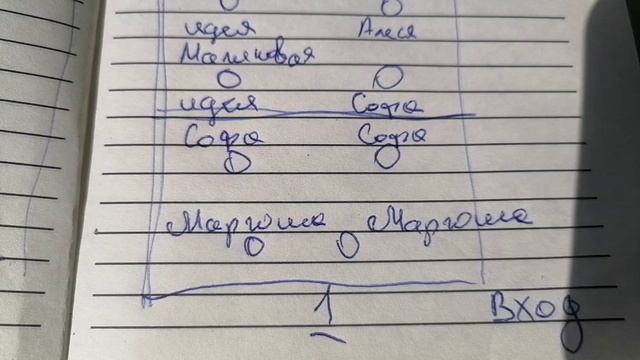 идея Алеся
Малиновая
идея Софа
Софа Софа
Маргоша Маргоша
1
Вход